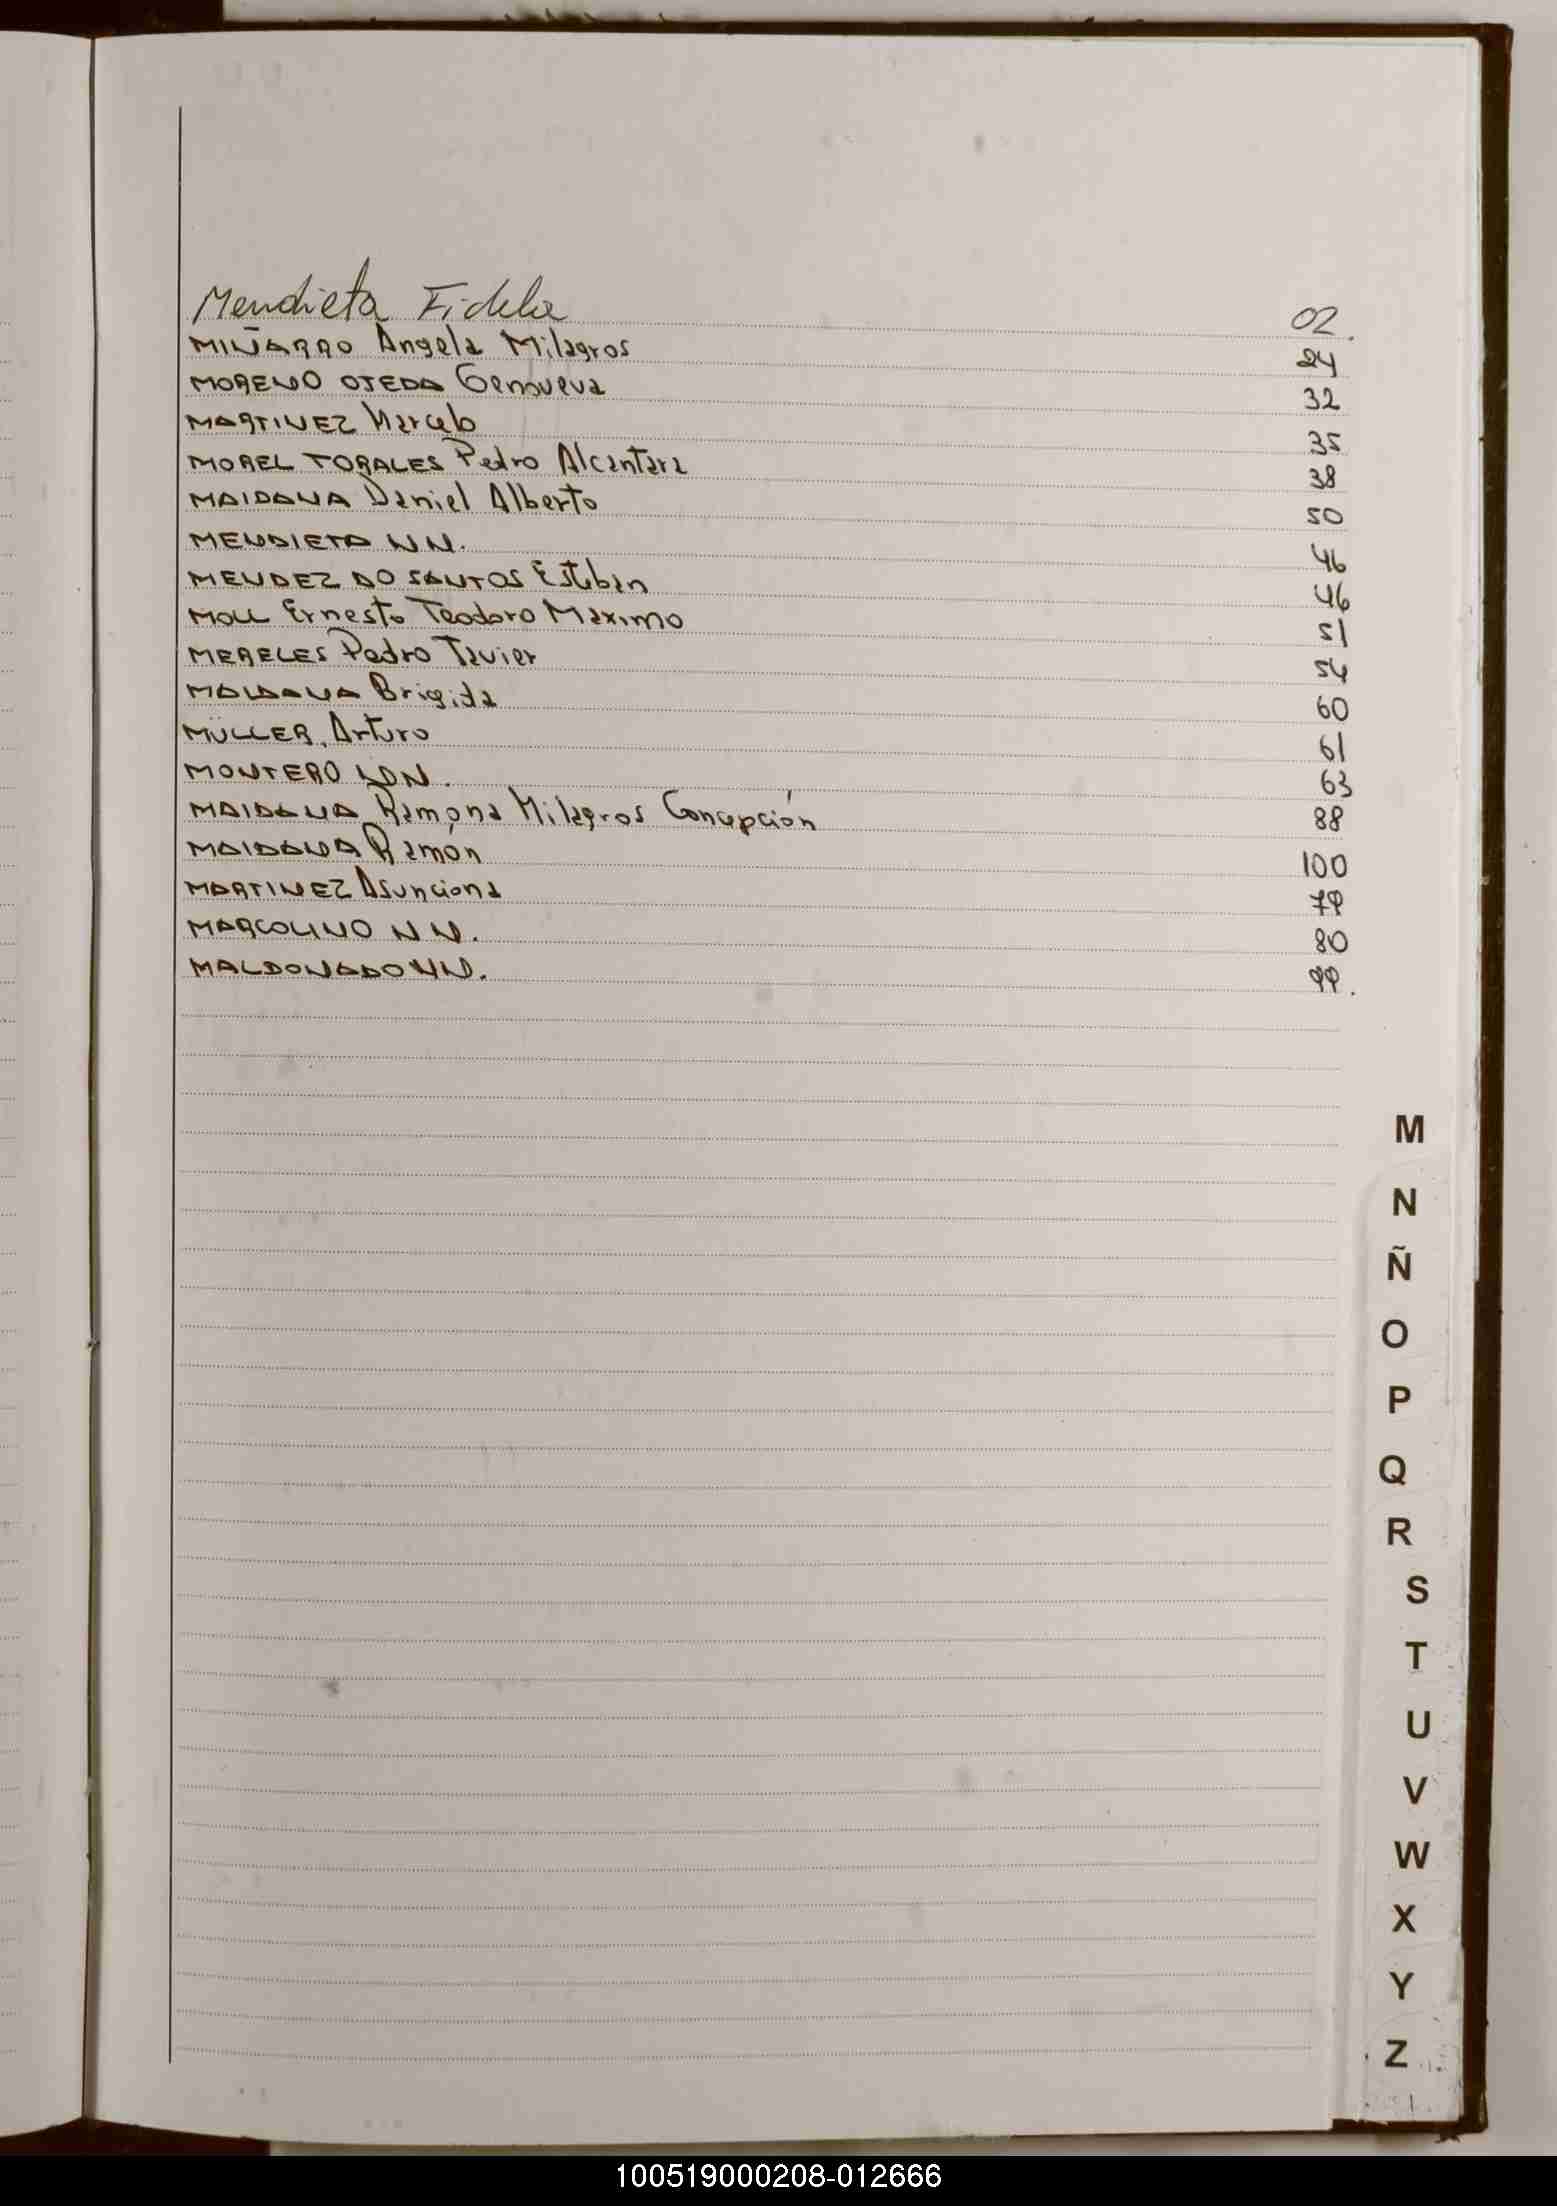 Mendieta Fidela 02.
MIÑARRO Angela Milagros 24
MORENO OJEDA Genoveva 32
MARTINEZ Marcelo 35
MOREL TORALES Pedro Alcantara 38
MAIDANA Daniel Alberto 50
MENDIETA NN. 46
MENDEZ DO SANTOS Esteban 46
MOLL Ernesto Teodoro Maximo 51
MERELES Pedro Javier 54
MAIDANA Brigida 60
MÜLLER, Arturo 61
MONTERO NN. 63
MAIDANA Ramona Milagros Concepción 88
MAIDANA Ramón 100
MARTINEZ Asunciona 79
MARCOLINO NN. 80
MALDONADO NN. 99.
M
N
Ñ
O
P
Q
R
S
T
U
V
W
X
Y
Z
100519000208-012666